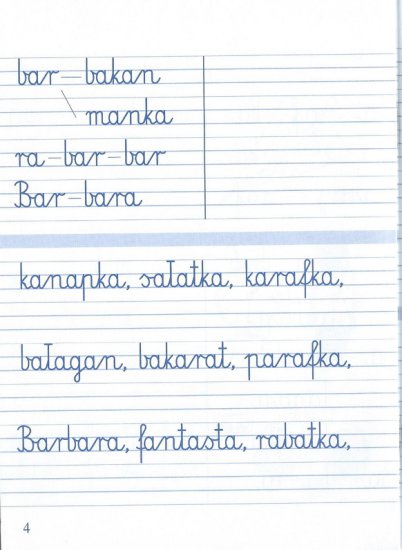 bar – bakan
manka
ra – bar – bar
Bar – bara
kanapka, sałatka, karafka,
bałagan, bakarat, parafka,
Barbara, fantasta, rabatka,
4